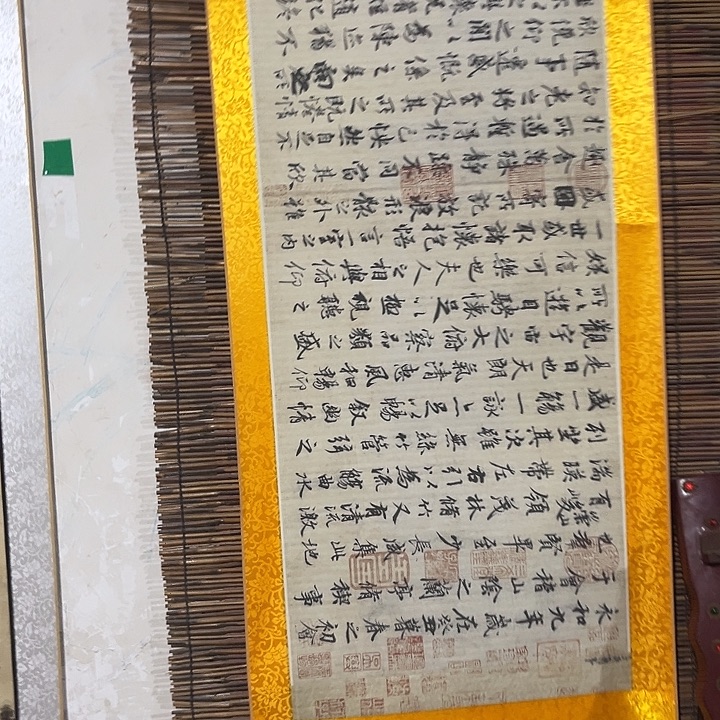 永和九年歲在癸丑暮春之初會
于會稽山陰之蘭亭脩禊事
也羣賢畢至少長咸集此地
有崇山峻領茂林脩竹又有清流激
湍暎帶左右引以為流觴曲水
列坐其次雖無絲竹管弦之
盛一觴一詠亦足以暢敘幽情
是日也天朗氣清惠風和暢仰
觀宇宙之大俯察品類之盛
所以遊目騁懷足以極視聽之
娛信可樂也夫人之相與俯仰
一世或取諸懷抱悟言一室之內
或因寄所託放浪形骸之外雖
趣舍萬殊靜躁不同當其欣
於所遇蹔得於己怏然自足不
知老之將至及其所之既惓情
隨事遷感慨係之矣向之所
欣俛仰之閒以為陳迹猶不